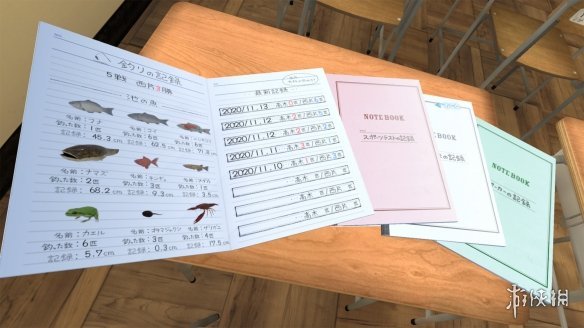 釣りの記録
5戦 西片3勝
池の魚
名前：フナ
釣った数：1匹
記録：45.3 cm
名前：コイ
釣った数：
記録：62.5 cm
釣った数：6匹
記録：71.3 cm
名前：ナマズ
釣った数：2匹
記録：68.2 cm
名前：キンギョ
釣った数：3匹
記録：9.3 cm
名前：メダカ
釣った数：1匹
記録：3.5 cm
名前：カエル
釣った数：6匹
記録：5.7 cm
名前：オタマジャクシ
釣った数：3匹
記録：0.3 cm
名前：ザリガニ
釣った数：4匹
記録：17.5 cm
最新記録
2020/11.13 高木0匹/西片5匹
2020/11.12 高木
2020/11.12 高木
2020/11.11 高木
2020/11.10 高木
高木 匹/西片 匹
高木 匹/西片 匹
高木 匹/西片 匹
NOTE BOOK
スポーツテストの記録
NOTE BOOK
の記録
NOTE BOOK
カーの記録
游侠网